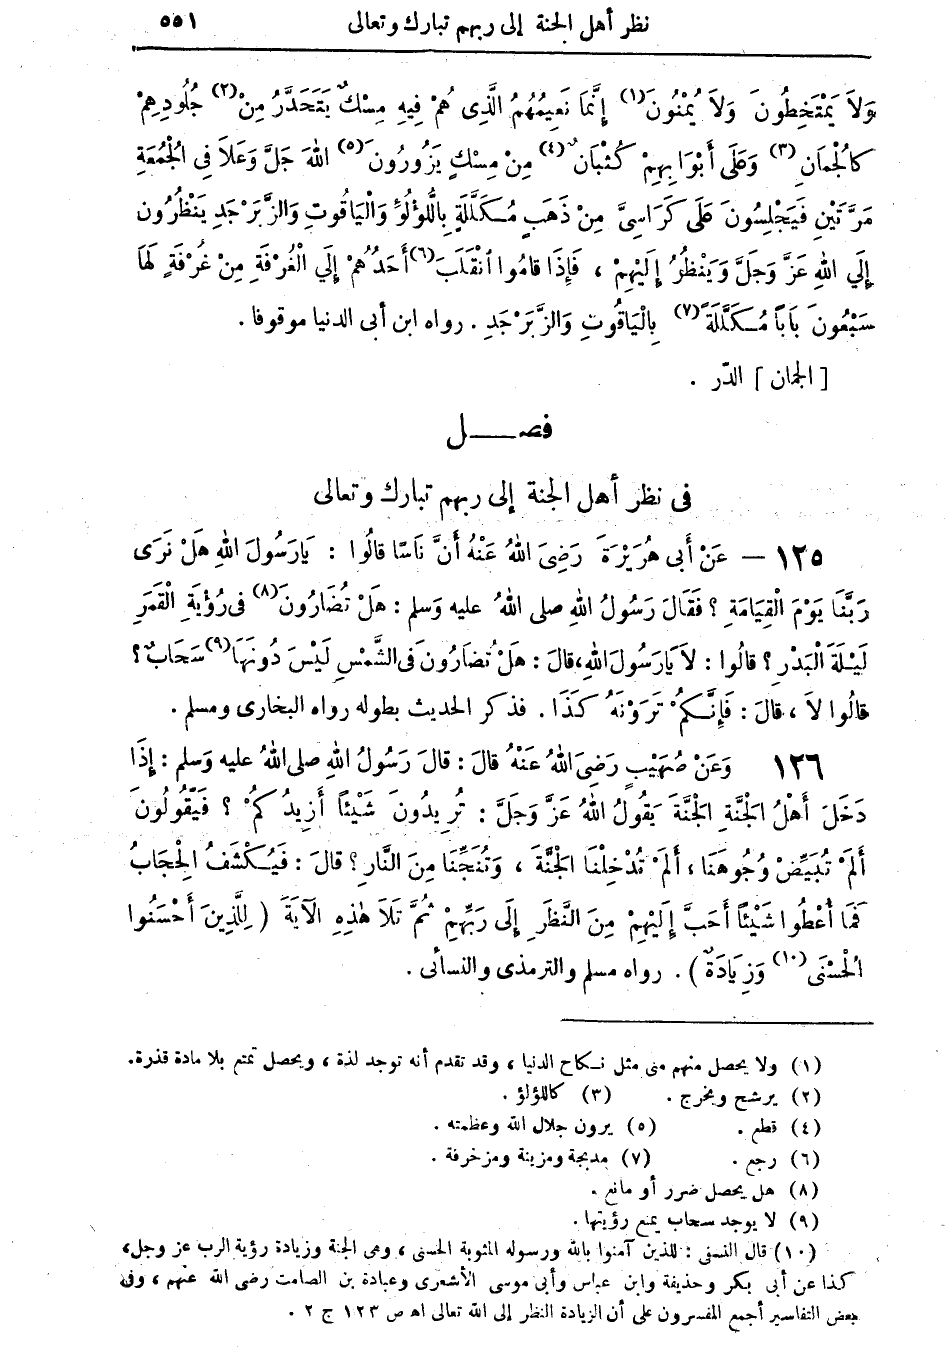 نظر أهل الجنة إلى ربهم تبارك وتعالى ٥٥١
وَلَا يَمْتَخِطُونَ وَلَا يُمْنُونَ(١) إِنَّمَا نَعِيمُهُمُ الَّذِى هُمْ فِيهِ مِسْكٌ يَتَحَدَّرُ مِنْ(٢) جُلُودِهِمْ
كالْجُمَانِ(٣) وَعَلَى أَبْوَابِهِمْ كُثْبَانٌ(٤) مِنْ مِسْكٍ يَزُورُونَ(٥) اللهَ جَلَّ وَعَلَا فِى الْجُمُعَةِ
مَرَّتَيْنِ فَيَجْلِسُونَ عَلَى كَرَاسِىَّ مِنْ ذَهَبٍ مُكَلَّلَةٍ بِاللُّؤْلُؤِ وَالْيَاقُوتِ وَالزَّبَرْجَدِ يَنْظُرُونَ
إِلَى اللهِ عَزَّ وَجَلَّ وَيَنْظُرُ إِلَيْهِمْ ، فَإِذَا قامُوا انْقَلَبَ(٦) أَحَدُهُمْ إِلَى الْغُرْفَةِ مِنْ غُرْفَةٍ لَهَا
سَبْعُونَ بَابًا مُكَلَّلَةً(٧) بِالْيَاقُوتِ وَالزَّبَرْجَدِ . رواه ابن أبى الدنيا موقوفا .
[ الجمان ] الدّر .
فصــــل
فى نظر أهل الجنة إلى ربهم تبارك وتعالى
١٢٥ — عَنْ أَبى هُرَيْرَةَ رَضِىَ اللهُ عَنْهُ أَنَّ نَاسًا قالُوا : يَارَسُولَ اللهِ هَلْ نَرَى
رَبَّنَا يَوْمَ الْقِيَامَةِ ؟ فَقَالَ رَسُولُ اللهِ صلى اللهُ عليه وَسلم : هَلْ تُضَارُونَ(٨) فى رُؤْيَةِ الْقَمَرِ
لَيْلَةَ الْبَدْرِ ؟ قالُوا : لَا يَارَسُولَ اللهِ، قالَ : هَلْ تُضَارُونَ فى الشَّمْسِ لَيْسَ دُونَهَا(٩) سَحَابٌ ؟
قالُوا لَا ، قالَ : فَإِنَّكُمْ تَرَوْنَهُ كَذَا . فذكر الحديث بطوله رواه البخارى ومسلم .
١٢٦ وَعَنْ صُهَيْبٍ رَضِىَ اللهُ عَنْهُ قالَ : قالَ رَسُولُ اللهِ صلى اللهُ عليه وَسلم : إِذَا
دَخَلَ أَهْلُ الجَنَّةِ الجَنَّةَ يَقُولُ اللهُ عَزَّ وَجَلَّ : تُرِيدُونَ شَيْئًا أَزِيدُكُمْ ؟ فَيَقُولُونَ
أَلَمْ تُبَيِّضْ وُجُوهَنَا ، أَلَمْ تُدْخِلْنَا الجَنَّةَ ، وَتُنَجِّنَا مِنَ النَّارِ ؟ قالَ : فَيُكْشَفُ الْحِجَابُ
فَمَا أُعْطُوا شَيْئًا أَحَبَّ إِلَيْهِمْ مِنَ النَّظَرِ إِلَى رَبِّهِمْ ثُمَّ تَلَا هٰذِهِ الآيَةَ ( لِلَّذِينَ أَحْسَنُوا
الْحُسْنَى(١٠) وَزِيَادَةٌ ) . رواه مسلم والترمذى والنسائى .
(١) ولا يحصل منهم منى مثل نكاح الدنيا ، وقد تقدم أنه توجد لذة ، ويحصل تمتع بلا مادة قذرة.
(٢) يرشح ويخرج . (٣) كاللؤلؤ .
(٤) قطع . (٥) يرون جلال الله وعظمته .
(٦) رجع . (٧) مدبجة ومزينة ومزخرفة .
(٨) هل يحصل ضرر أو مانع .
(٩) لا يوجد سحاب يمنع رؤيتها .
(١٠) قال النسفى : للذين آمنوا بالله ورسوله المثوبة الحسنى ، وهى الجنة وزيادة رؤية الرب عز وجل،
كذا عن أبى بكر وحذيفة وابن عباس وأبى موسى الأشعرى وعبادة بن الصامت رضى الله عنهم ، وفى
بعض التفاسير أجمع المفسرون على أن الزيادة النظر إلى الله تعالى اه ص ١٢٣ ج ٢ .